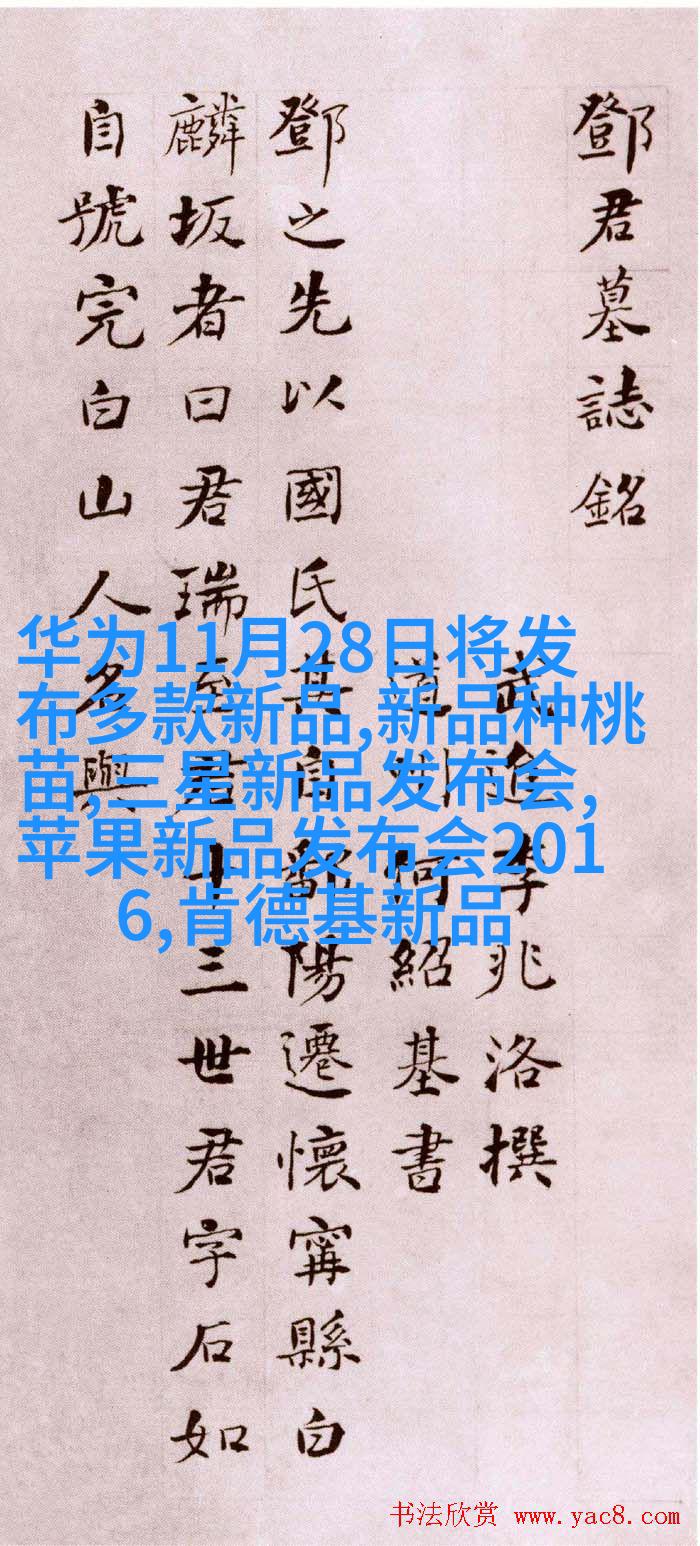 鄧君墓誌銘
武進李兆洛撰
道州何紹基書
鄧之先以國氏其自鄱陽遷懷甯縣白
麟坂者曰君瑞至君十三世君字石如
自號完白山人名與
华为11月28日将发
布多款新品,新品种桃
苗,三星新品发布会,
苹果新品发布会201
6,肯德基新品
书法欣赏 www.yac8.com